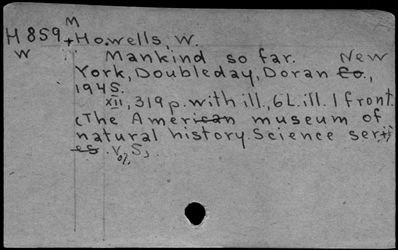 M
H 859 + Howells, W.
W Mankind so far. New
York, Doubleday, Doran Co.,
1945.
XII, 319 p. with ill., 6 L. ill. 1 front.
(The American museum of
natural history. Science ser
es. V. 5,